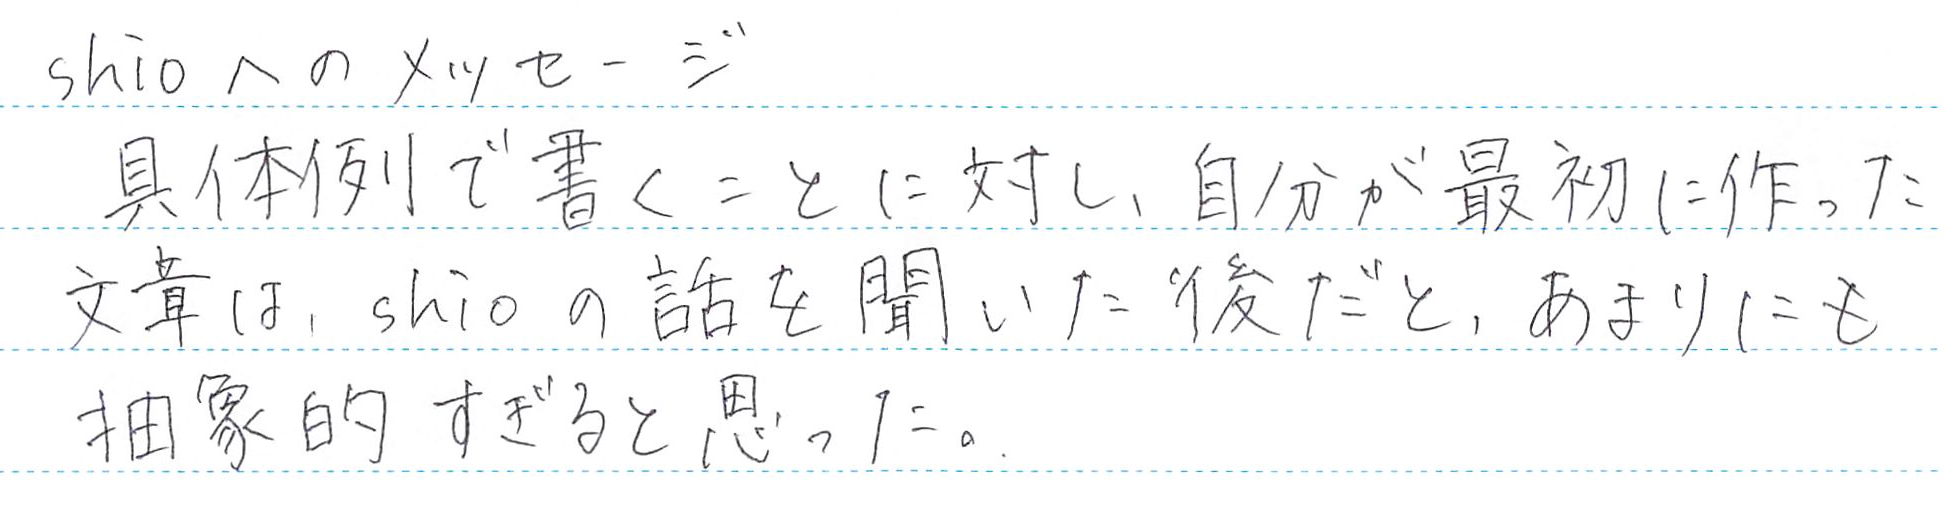 shioへのメッセージ
具体例で書くことに対し、自分が最初に作った
文章は、shioの話を聞いた後だと、あまりにも
抽象的すぎると思った。